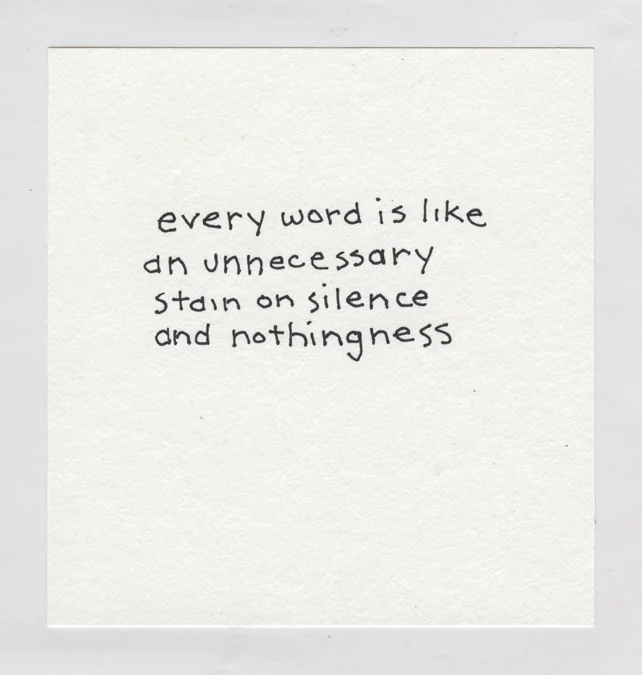 every word is like
an unnecessary
stain on silence
and nothingness